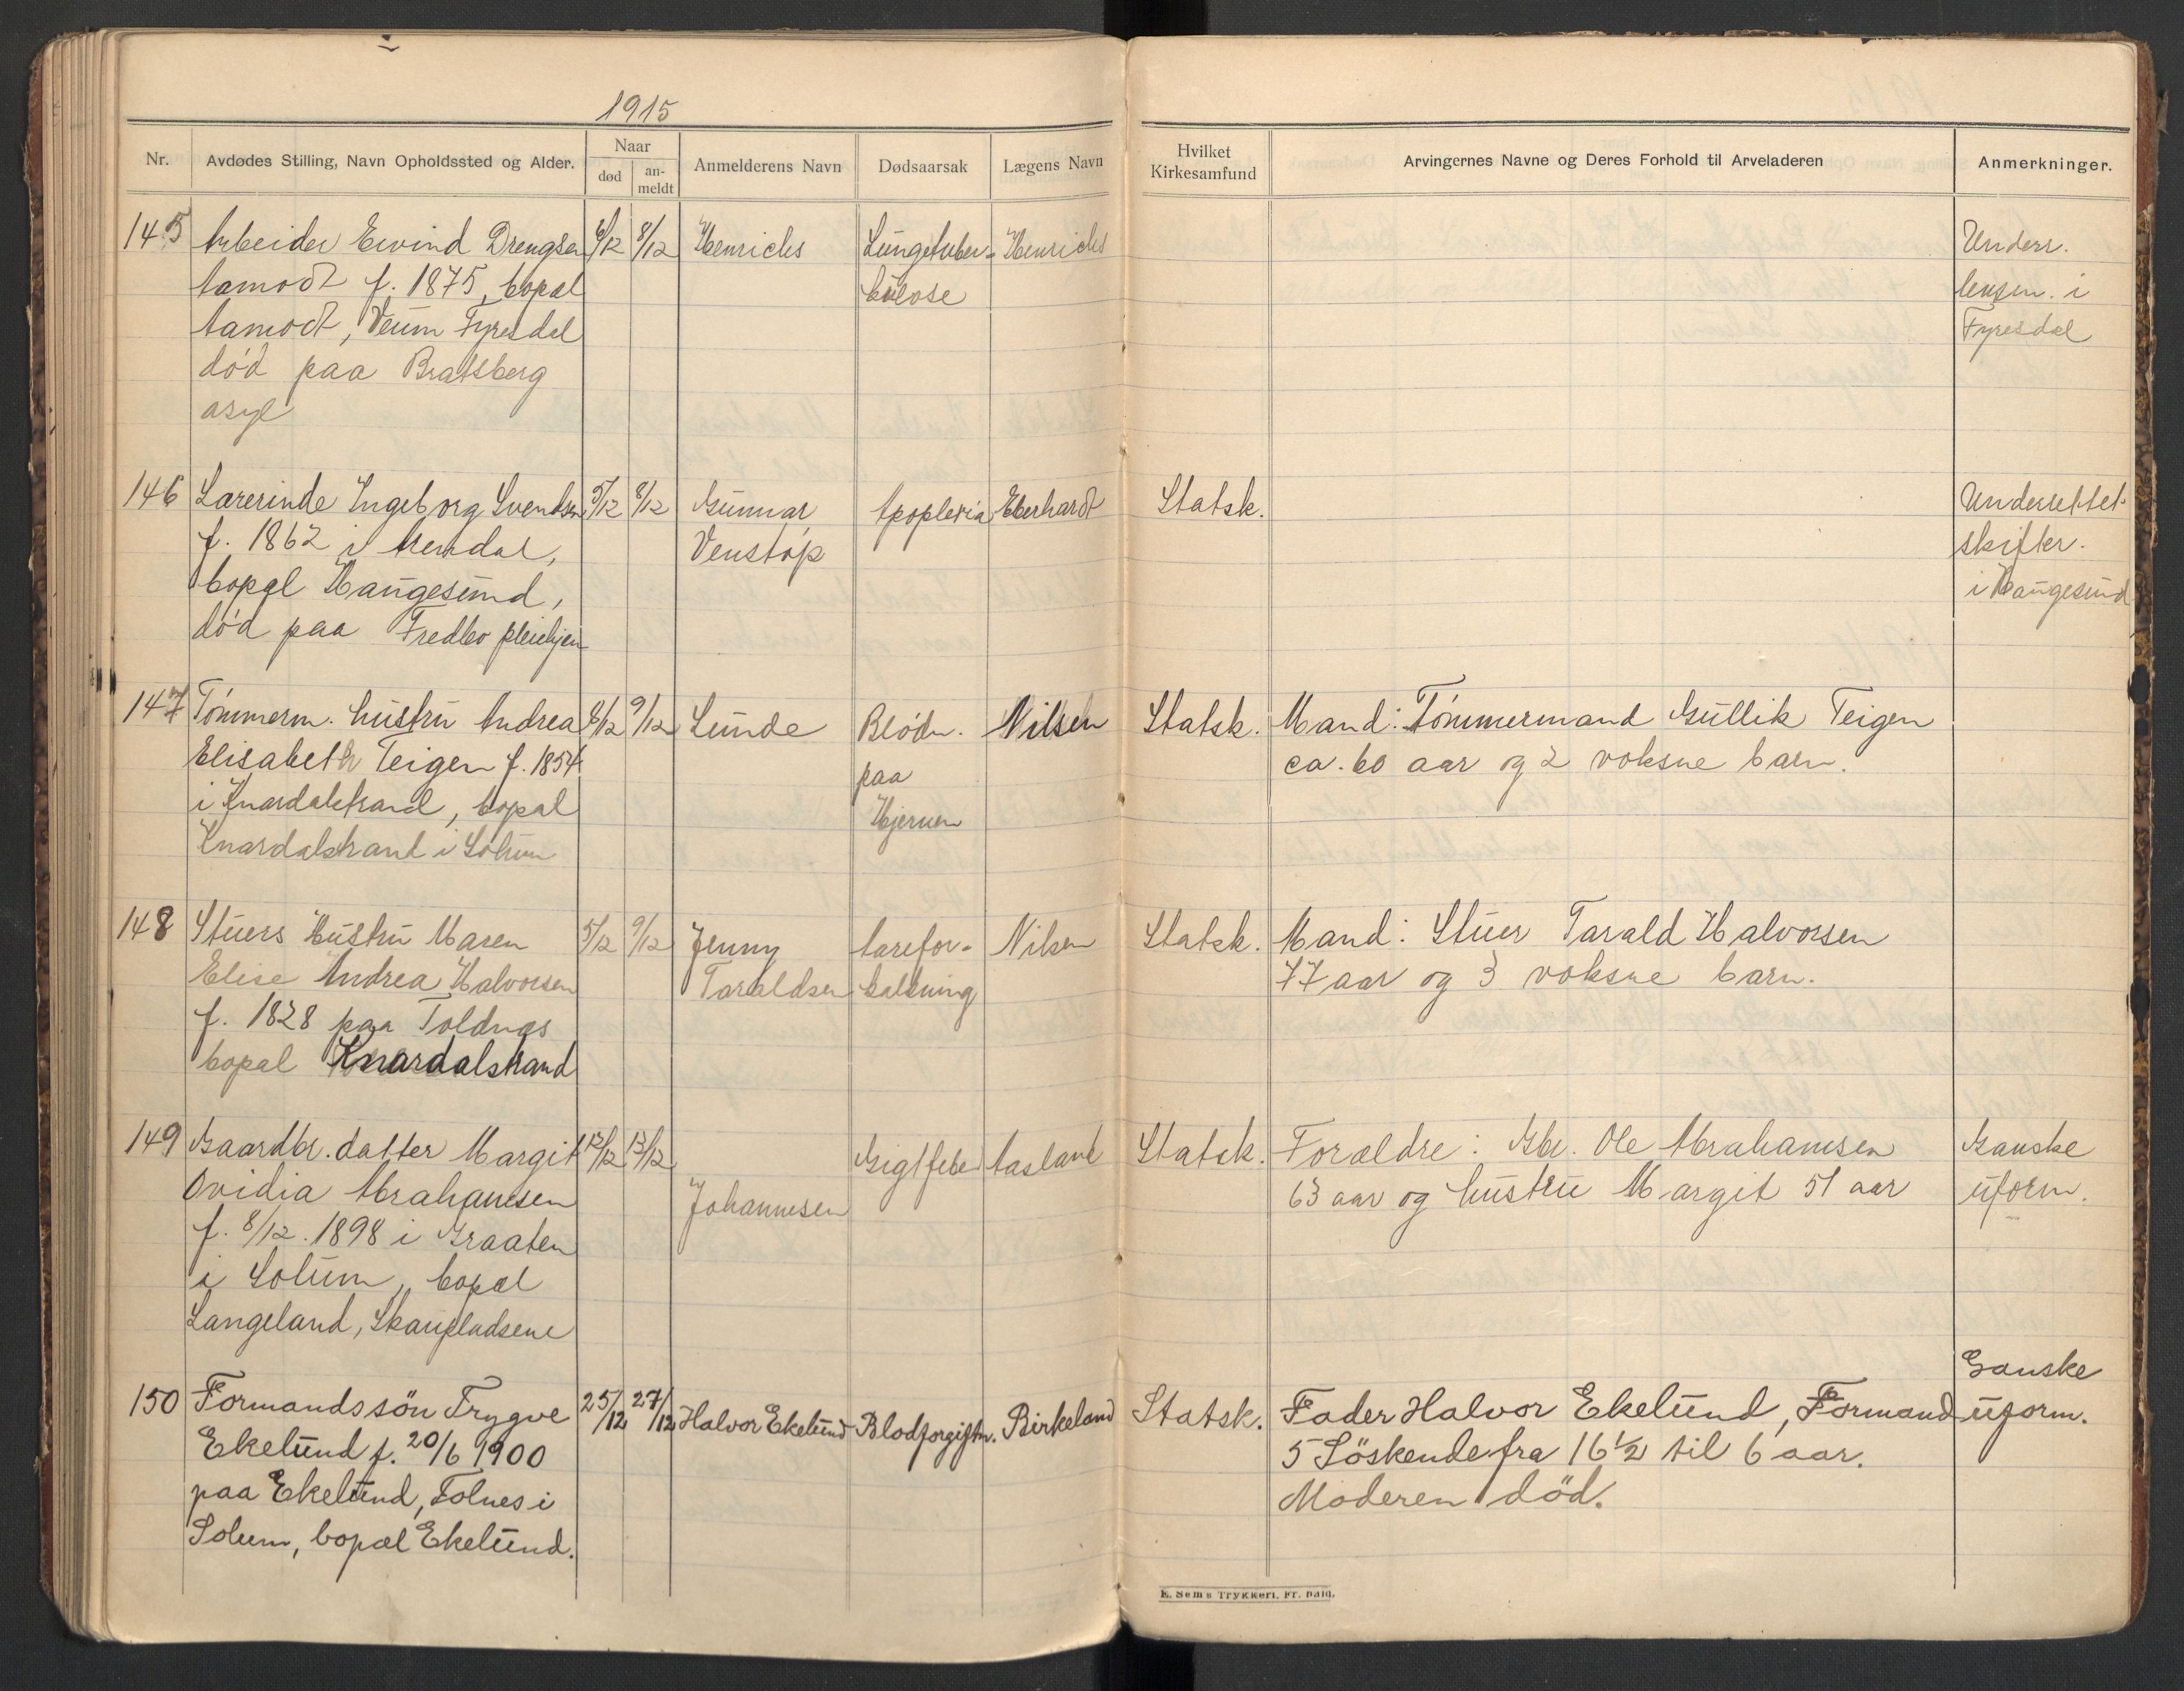 1915
Nr.
Avdødes Stilling, Navn Opholdssted og Alder.
Naar
død
an-
meldt
Anmelderens Navn
Dødsaarsak
Lægens Navn
Hvilket
Kirkesamfund
Arvingernes Navne og Deres Forhold til Arveladeren
Anmerkninger.
145 Arbeider Eivind Drengsen 6/12 8/12 Henrichs Lungetuber- Henrichs
Aamodt f. 1875, bopæl kulose
Aamodt, Veum Fyresdal
død paa Bratsberg
asyl
Underr.
lensm. i
Fyresdal
146 Lærerinde Ingeborg Svendsen 5/12 8/12 Gunnar Apoplexia Eberhardt Statsk.
f. 1862 i Arendal, Venstøp
bopæl Haugesund,
død paa Fredbo pleiehjem
Underrettet
skifter.
i Haugesund
147 Tømmerm. hustru Andrea 8/12 9/12 Lunde Blødn. Nilsen Statsk. Mand: Tømmermand Gullik Teigen
Elisabeth Teigen f. 1854 paa ca. 60 aar og 2 voksne barn.
i Knardalstrand, bopæl Hjernen
Knardalstrand i Solum
148 Stuers Hustru Maren 5/12 9/12 Jenny Aarefor- Nilsen Statsk. Mand: Stuer Tarald Halvorsen
Elise Andrea Halvorsen Taraldsen kalkning 77 aar og 3 voksne barn.
f. 1828 paa Toldnæs
bopæl Knardalstrand
149 Gaardbr. datter Margit 12/12 13/12 Gigtfeber Aasland Statsk. Forældre: Gbr. Ole Abrahamsen Ganske
Ovidia Abrahamsen Johannesen 63 aar og hustru Margit 51 aar uform.
f. 8/12. 1898 i Graaten
i Solum, bopæl
Langeland, Skaupladsene
150 Formandssön Trygve 25/12 27/12 Halvor Ekelund Blodforgiftn. Birkeland Statsk. Fader Halvor Ekelund, Formand Ganske
Ekelund f. 20/6 1900 5 Söskende fra 16 1/2 til 6 aar. uform.
paa Ekelund, Tolnes i Moderen död.
Solum, bopæl Ekelund.
E. Sem's Trykkeri, Fr. hald.